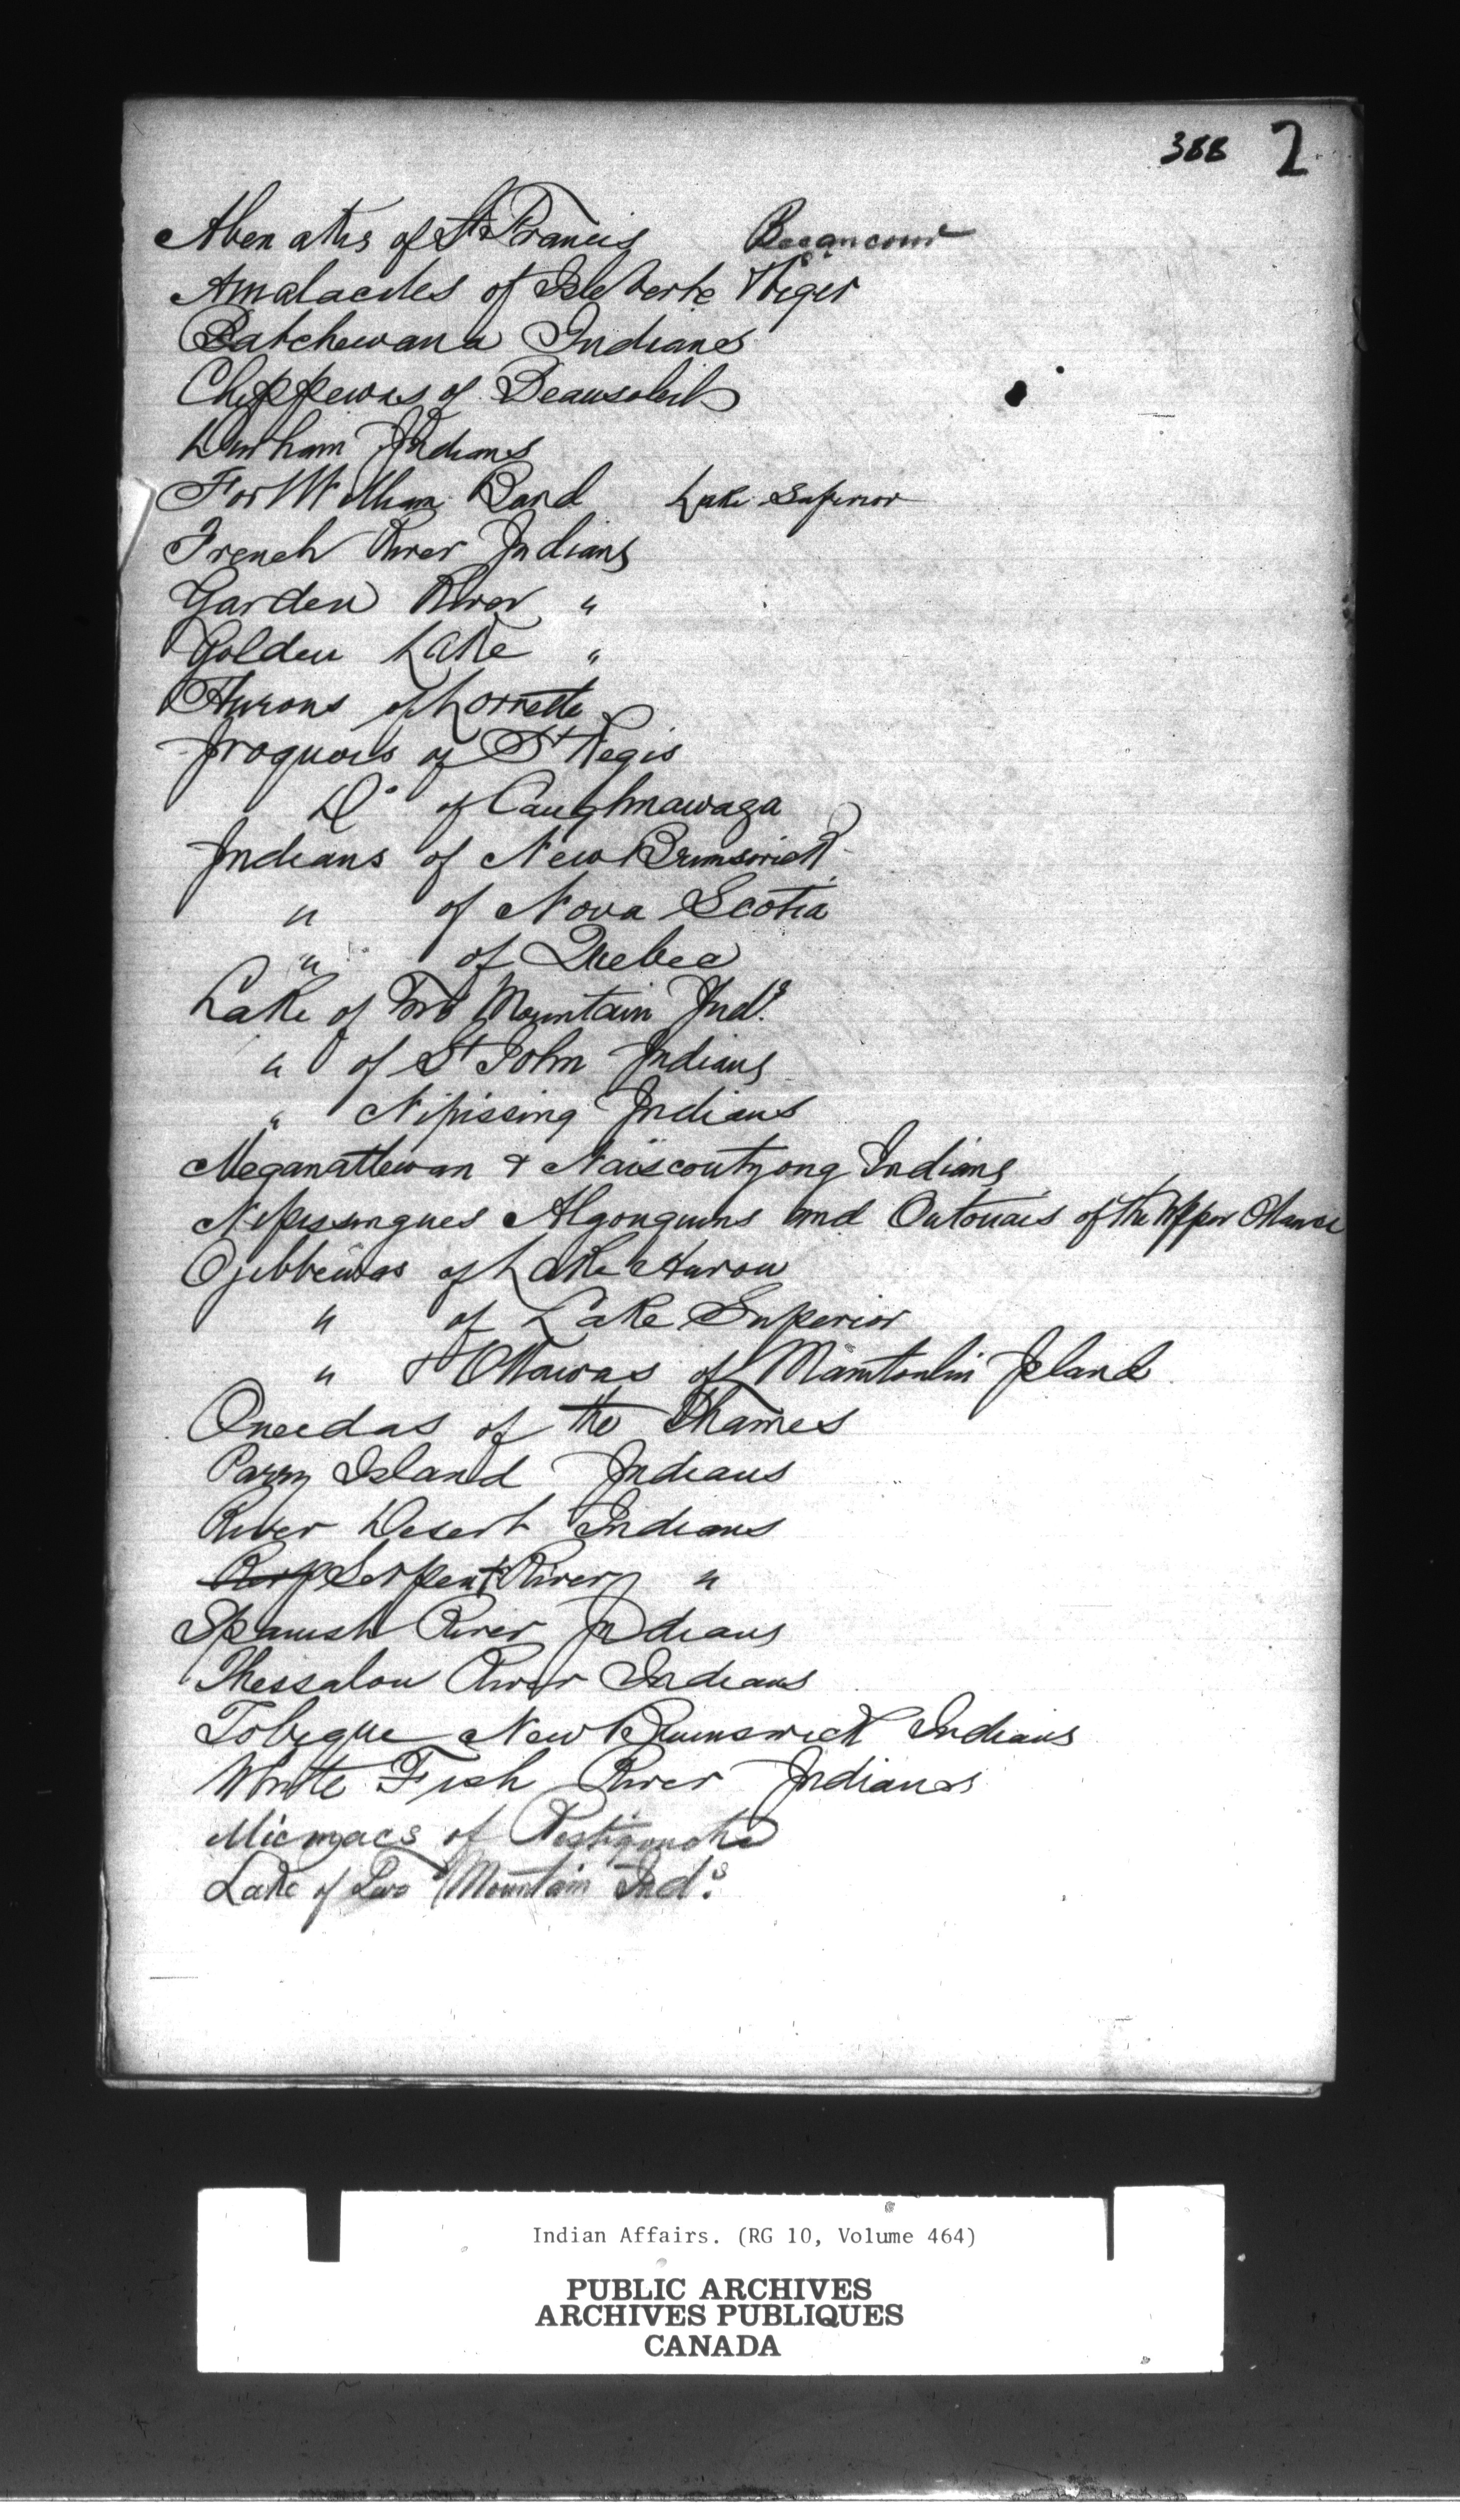 388 2
Abenakis of St Francis Becancour
Amalacites of Isle Verte Viger
Batchewana Indians
Chippewas of Beausoleil
Durham Indians
Fort William Band Lake Superior
French River Indians
Garden River "
Golden Lake "
Hurons of Lorrette
Iroquois of St Regis
Do of Caughnawaga
Indians of New Brunswick
" of Nova Scotia
" of Quebec
Lake of Two Mountain Inds.
" of St John Indians
" Nipissing Indians
Meganattewan & Naiscoutyong Indians
Nipissingues Algonquins and Outouais of the Upper Ottawa
Ojibbewas of Lake Huron
" of Lake Superior
" & Ottawas of Manitoulin Island
Oneidas of the Thames
Parry Island Indians
River Desert Indians
Serpent River "
Spanish River Indians
Thessalon River Indians
Tobique New Brunswick Indians
White Fish River Indians
Micmacs of Restigouche
Lake of Two Mountain Inds.
Indian Affairs. (RG 10, Volume 464)
PUBLIC ARCHIVES
ARCHIVES PUBLIQUES
CANADA